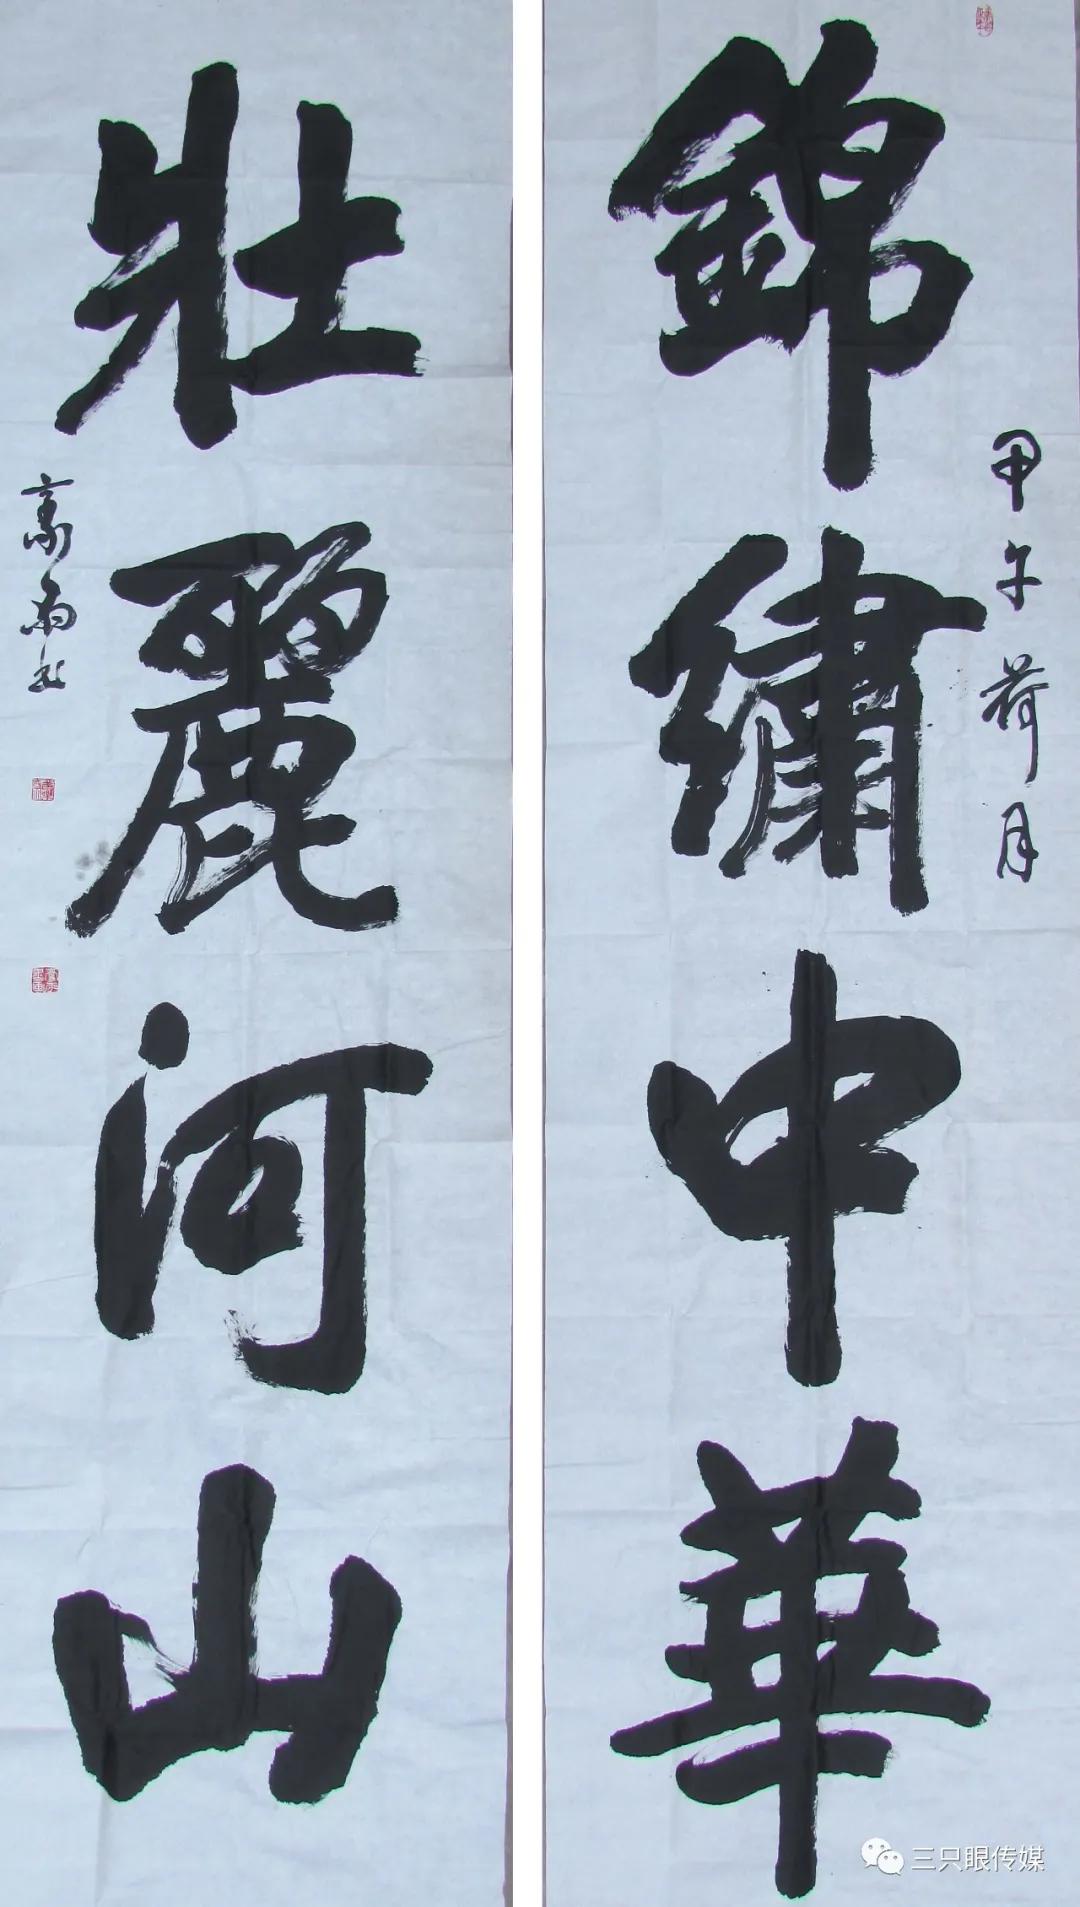 錦繡中華
甲午荷月
壯麗河山
三只眼传媒